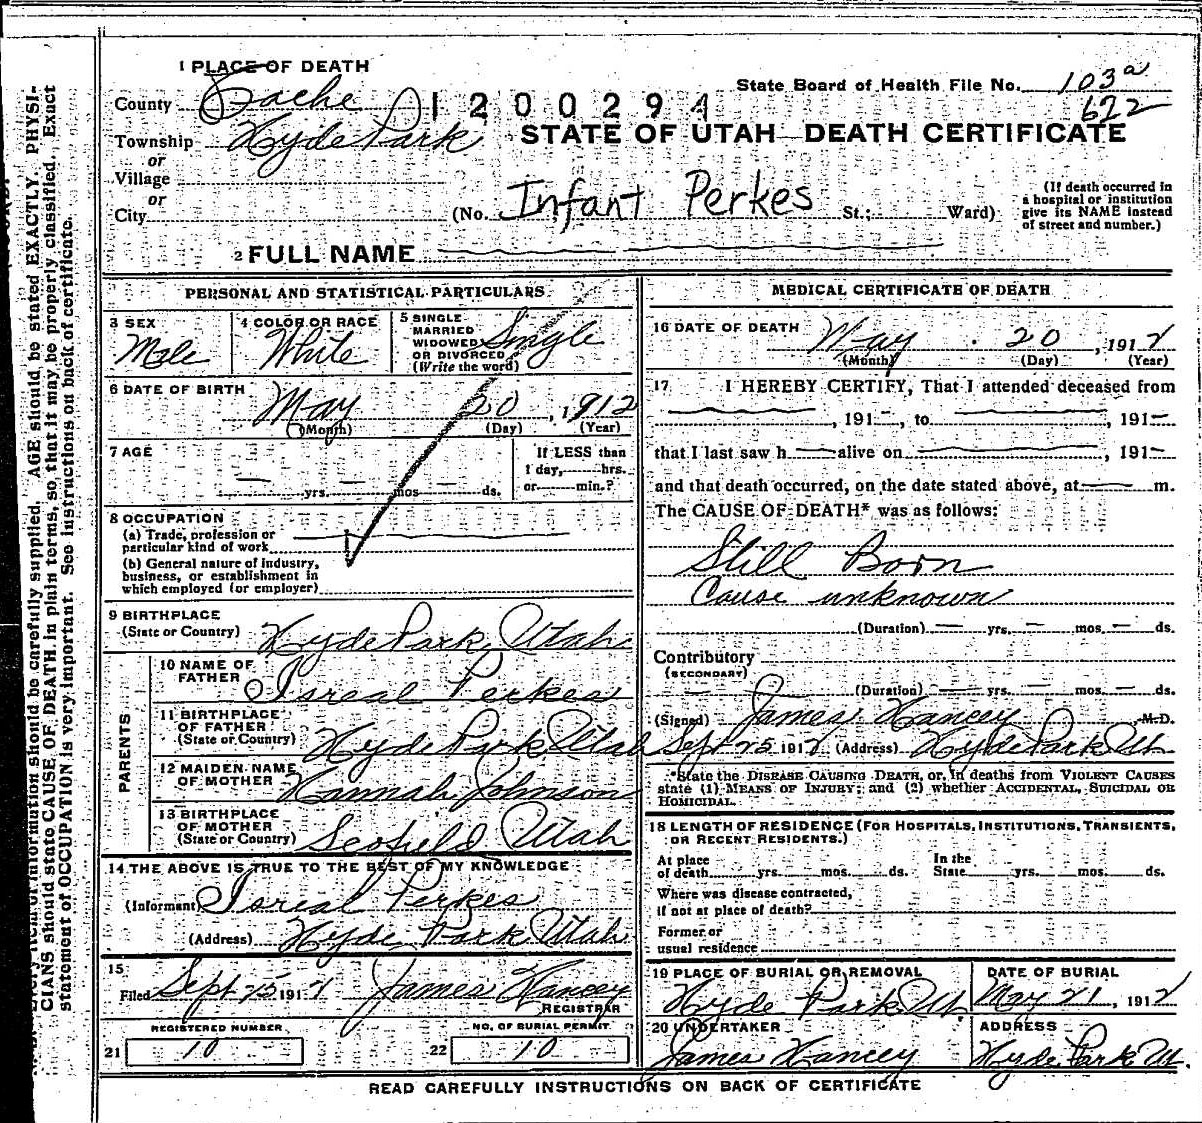 1 PLACE OF DEATH
State Board of Health File No. 103a
622
County Cache
1200294
Township Hyde Park
STATE OF UTAH DEATH CERTIFICATE
or
Village
or
City
(No. Infant Perkes St.; Ward)
(If death occurred in a hospital or institution give its NAME instead of street and number.)
2 FULL NAME
PERSONAL AND STATISTICAL PARTICULARS
3 SEX
Male
4 COLOR OR RACE
White
5 SINGLE MARRIED WIDOWED OR DIVORCED (Write the word)
Single
6 DATE OF BIRTH
May 20, 1912
(Month) (Day) (Year)
7 AGE
yrs. mos ds.
If LESS than
1 day, hrs.
or min.?
8 OCCUPATION
(a) Trade, profession or
particular kind of work
(b) General nature of industry,
business, or establishment in
which employed (or employer)
9 BIRTHPLACE
(State or Country) Hyde Park, Utah
PARENTS
10 NAME OF FATHER
Isreal Perkes
11 BIRTHPLACE OF FATHER
(State or Country) Hyde Park Utah
12 MAIDEN NAME OF MOTHER
Hannah Johnson
13 BIRTHPLACE OF MOTHER
(State or Country) Scofield, Utah
14 THE ABOVE IS TRUE TO THE BEST OF MY KNOWLEDGE
(Informant) Isreal Perkes
(Address) Hyde Park Utah
15
Filed Sept 25 1912 James Hancey
REGISTRAR
REGISTERED NUMBER
21 10
NO. OF BURIAL PERMIT
22 10
MEDICAL CERTIFICATE OF DEATH
16 DATE OF DEATH
May 20, 1912
(Month) (Day) (Year)
17 I HEREBY CERTIFY, That I attended deceased from
, 191 , to , 191
that I last saw h alive on , 191
and that death occurred, on the date stated above, at m.
The CAUSE OF DEATH* was as follows:
Still Born
Cause unknown
(Duration) yrs. mos. ds.
Contributory
(SECONDARY)
(Duration) yrs. mos. ds.
(Signed) James Hancey, M.D.
Sept 25 1912 (Address) Hyde Park Ut
*State the DISEASE CAUSING DEATH, or, in deaths from VIOLENT CAUSES
state (1) MEANS OF INJURY; and (2) whether ACCIDENTAL, SUICIDAL OR
HOMICIDAL.
18 LENGTH OF RESIDENCE (FOR HOSPITALS, INSTITUTIONS, TRANSIENTS,
OR RECENT RESIDENTS.)
At place
of death yrs. mos. ds.
In the
State yrs. mos. ds.
Where was disease contracted,
if not at place of death?
Former or
usual residence
19 PLACE OF BURIAL OR REMOVAL
Hyde Park Ut
DATE OF BURIAL
May 21, 1912
20 UNDERTAKER
James Hancey
ADDRESS
Hyde Park Ut.
READ CAREFULLY INSTRUCTIONS ON BACK OF CERTIFICATE
item of information should be carefully supplied. AGE should be stated EXACTLY. PHYSI-
CIANS should state CAUSE OF DEATH in plain terms, so that it may be properly classified. Exact
statement of OCCUPATION is very important. See instructions on back of certificate.